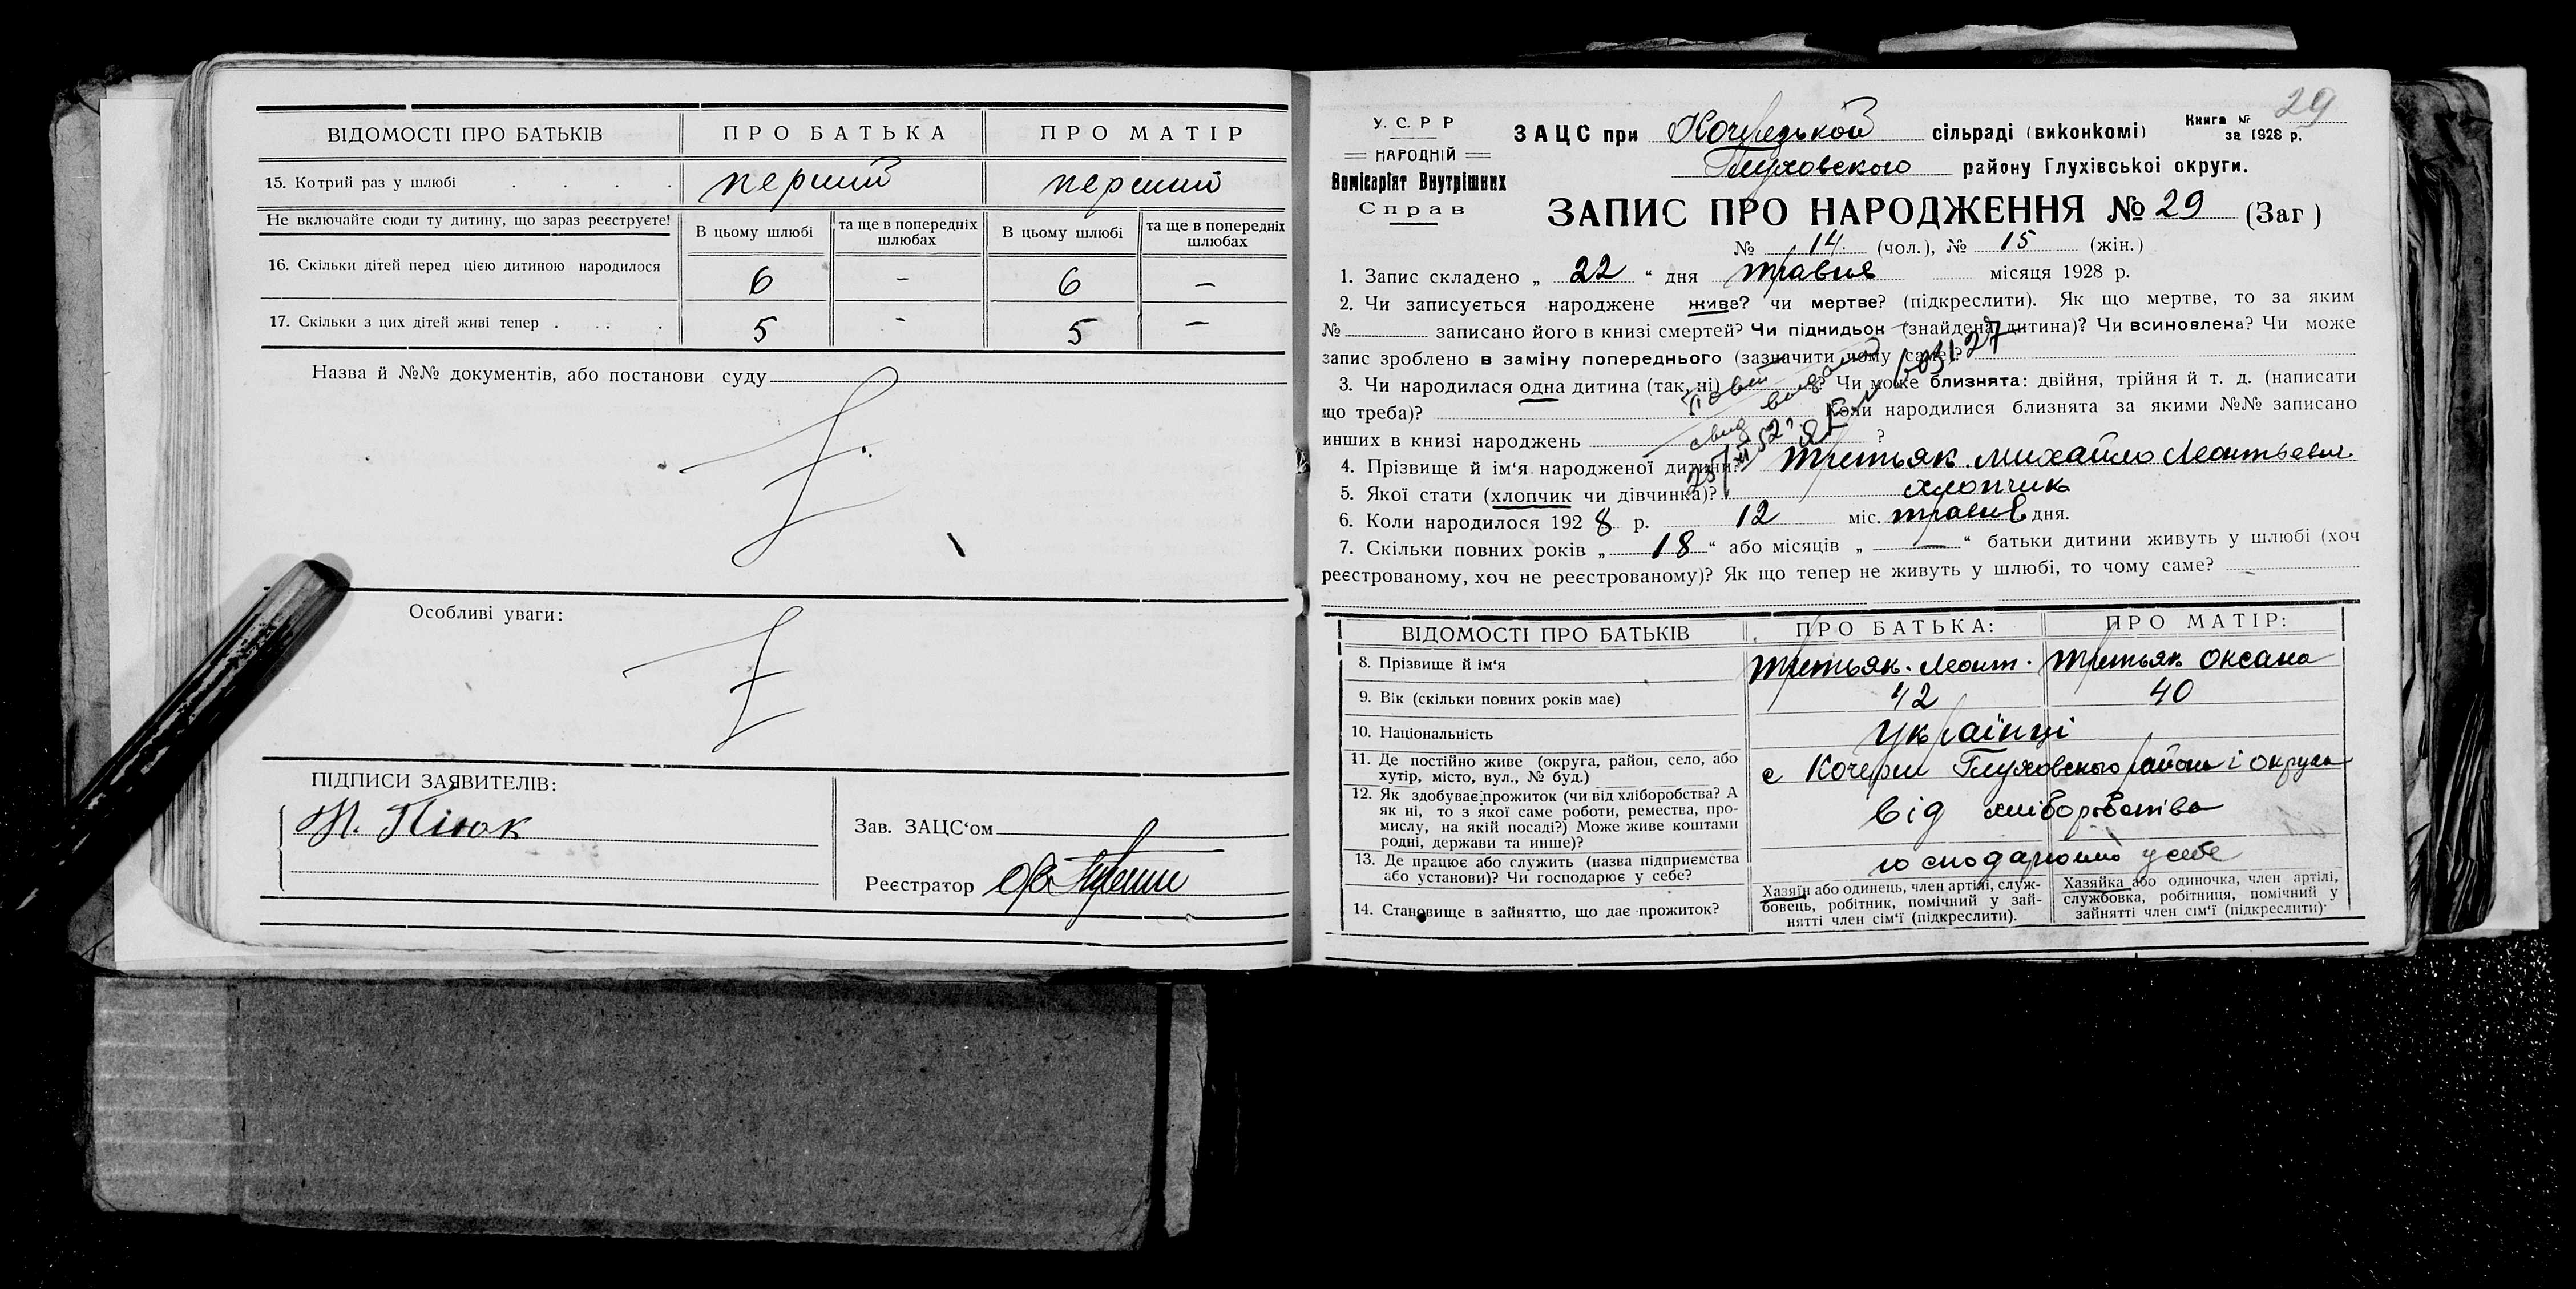 ВІДОМОСТІ ПРО БАТЬКІВ ПРО БАТЬКА ПРО МАТІР
15. Котрий раз у шлюбі перший перший
Не включайте сюди ту дитину, що зараз реєструєте! В цьому шлюбі та ще в попередніх шлюбах В цьому шлюбі та ще в попередніх шлюбах
16. Скільки дітей перед цією дитиною народилося 6 – 6 –
17. Скільки з цих дітей живі тепер 5 - 5 –
Назва й №№ документів, або постанови суду
Особливі уваги:
ПІДПИСИ ЗАЯВИТЕЛІВ:
Зав. ЗАЦС‘ом
Реєстратор
29
У. С. Р Р
НАРОДНІЙ
Комісаріят Внутрішних
Справ
ЗАЦС при сільраді (виконкомі)
Книга №
за 1928 р.
Глуховского району Глухівської округи.
ЗАПИС ПРО НАРОДЖЕННЯ № 29 (Заг )
№ 14 (чол.), № 15 (жін.)
1. Запис складено „ 22 “ дня травня місяця 1928 р.
2. Чи записується народжене живе? чи мертве? (підкреслити). Як що мертве, то за яким
№ записано його в книзі смертей? Чи піднидьок (знайдена дитина)? Чи всиновлена? Чи може
запис зроблено в заміну попереднього (зазначити чому саме)?
3. Чи народилася одна дитина (так, ні) ? Чи може близнята: двійня, трійня й т. д. (написати
що треба)? Коли народилися близнята за якими №№ записано
инших в книзі народжень ?
4. Прізвище й ім‘я народженої дитини? Третьяк Михайло Леонтьевич
5. Якої стати (хлопчик чи дівчинка)? хлопчик
6. Коли народилось 192 8 р. 12 міс. травня дня.
7. Скільки повних років „ 18 “ або місяців „ — “ батьки дитини живуть у шлюбі (хоч
реєстрованому, хоч не реєстрованому)? Як що тепер не живуть у шлюбі, то чому саме?
ВІДОМОСТІ ПРО БАТЬКІВ ПРО БАТЬКА: ПРО МАТІР:
8. Прізвище й ім‘я Третьяк Леонт. Третьяк Оксана
9. Вік (скільки повних років має) 42 40
10. Національність Українці
11. Де постійно живе (округа, район, село, або
хутір, місто, вул., № буд.) с Кочерги Глуховского района і округа
12. Як здобуває прожиток (чи від хліборобства? А
як ні, то з якої саме роботи, ремества, про-
мислу, на якій посаді?) Може живе коштами
родні, держави та инше)? від хліборобства
13. Де працює або служить (назва підприємства
або установи)? Чи господарює у себе? у себе
14. Становище в зайняттю, що дає прожиток?
Хазяїн або одинець, член артілі, служ-
бовець, робітник, помічний у зай-
нятті член сім‘ї (підкреслити).
Хазяйка або одиночка, член артілі,
службовка, робітниця, помічний у
зайнятті член сім‘ї (підкреслити).